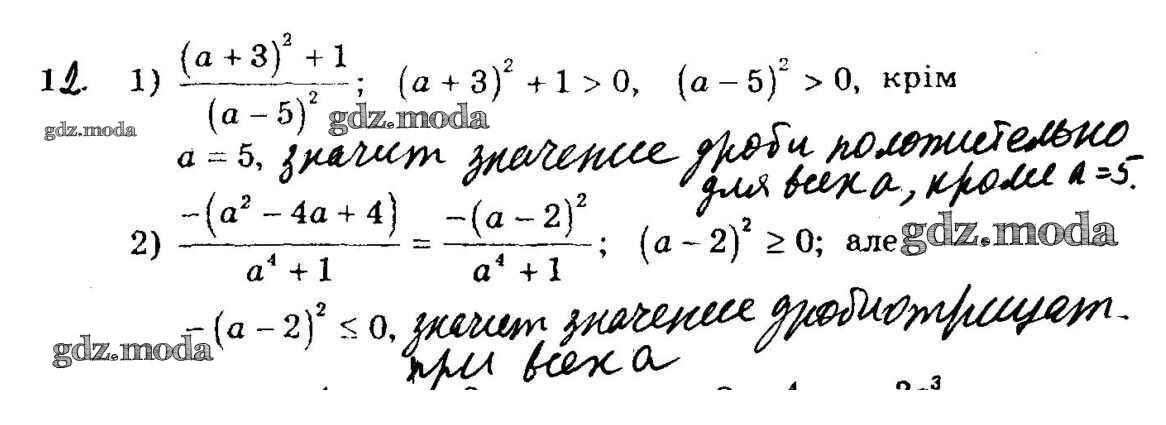 12. 1) ((a + 3)² + 1) / (a – 5)² ; (a + 3)² + 1 > 0, (a – 5)² > 0, крім
gdz.moda gdz.moda
a = 5, значит значение дроби положительно
для всех а, кроме а = 5.
2) –(a² – 4a + 4) / (a⁴ + 1) = –(a – 2)² / (a⁴ + 1) ; (a – 2)² ≥ 0; але gdz.moda
– (a – 2)² ≤ 0, значит значение дроби отрицат.
gdz.moda при всех а